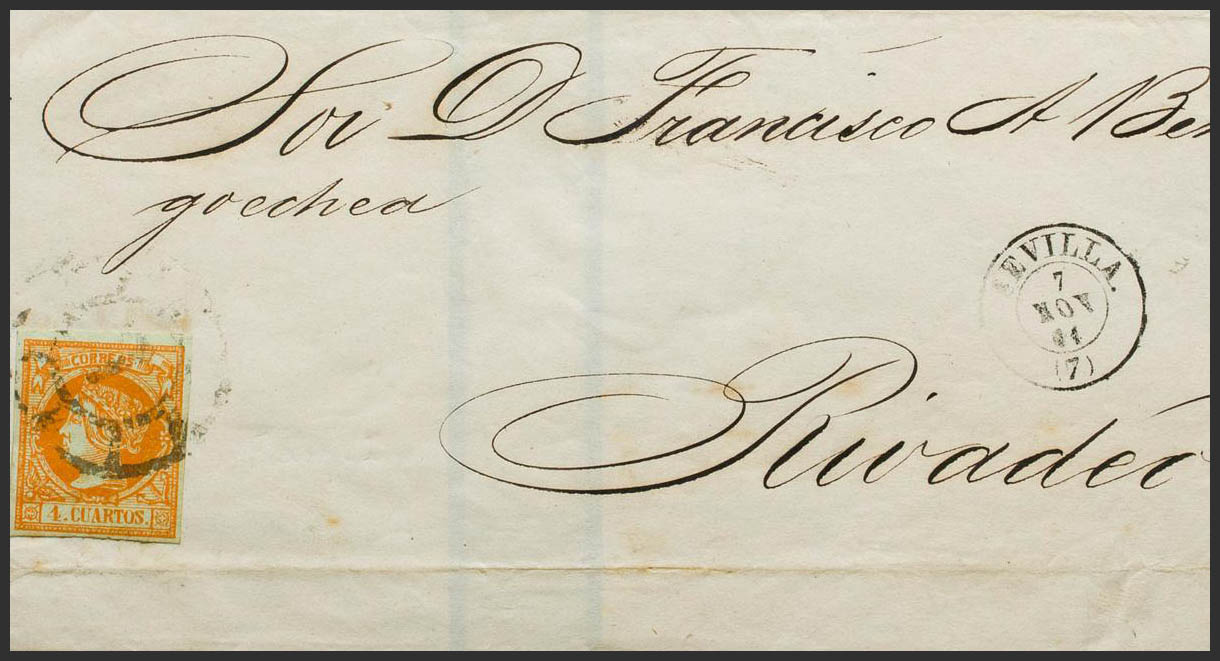 Sor D Francisco A Ben
goechea
SEVILLA.
7
NOV
61
(7)
Rivadeo
CORREOS
4. CUARTOS.